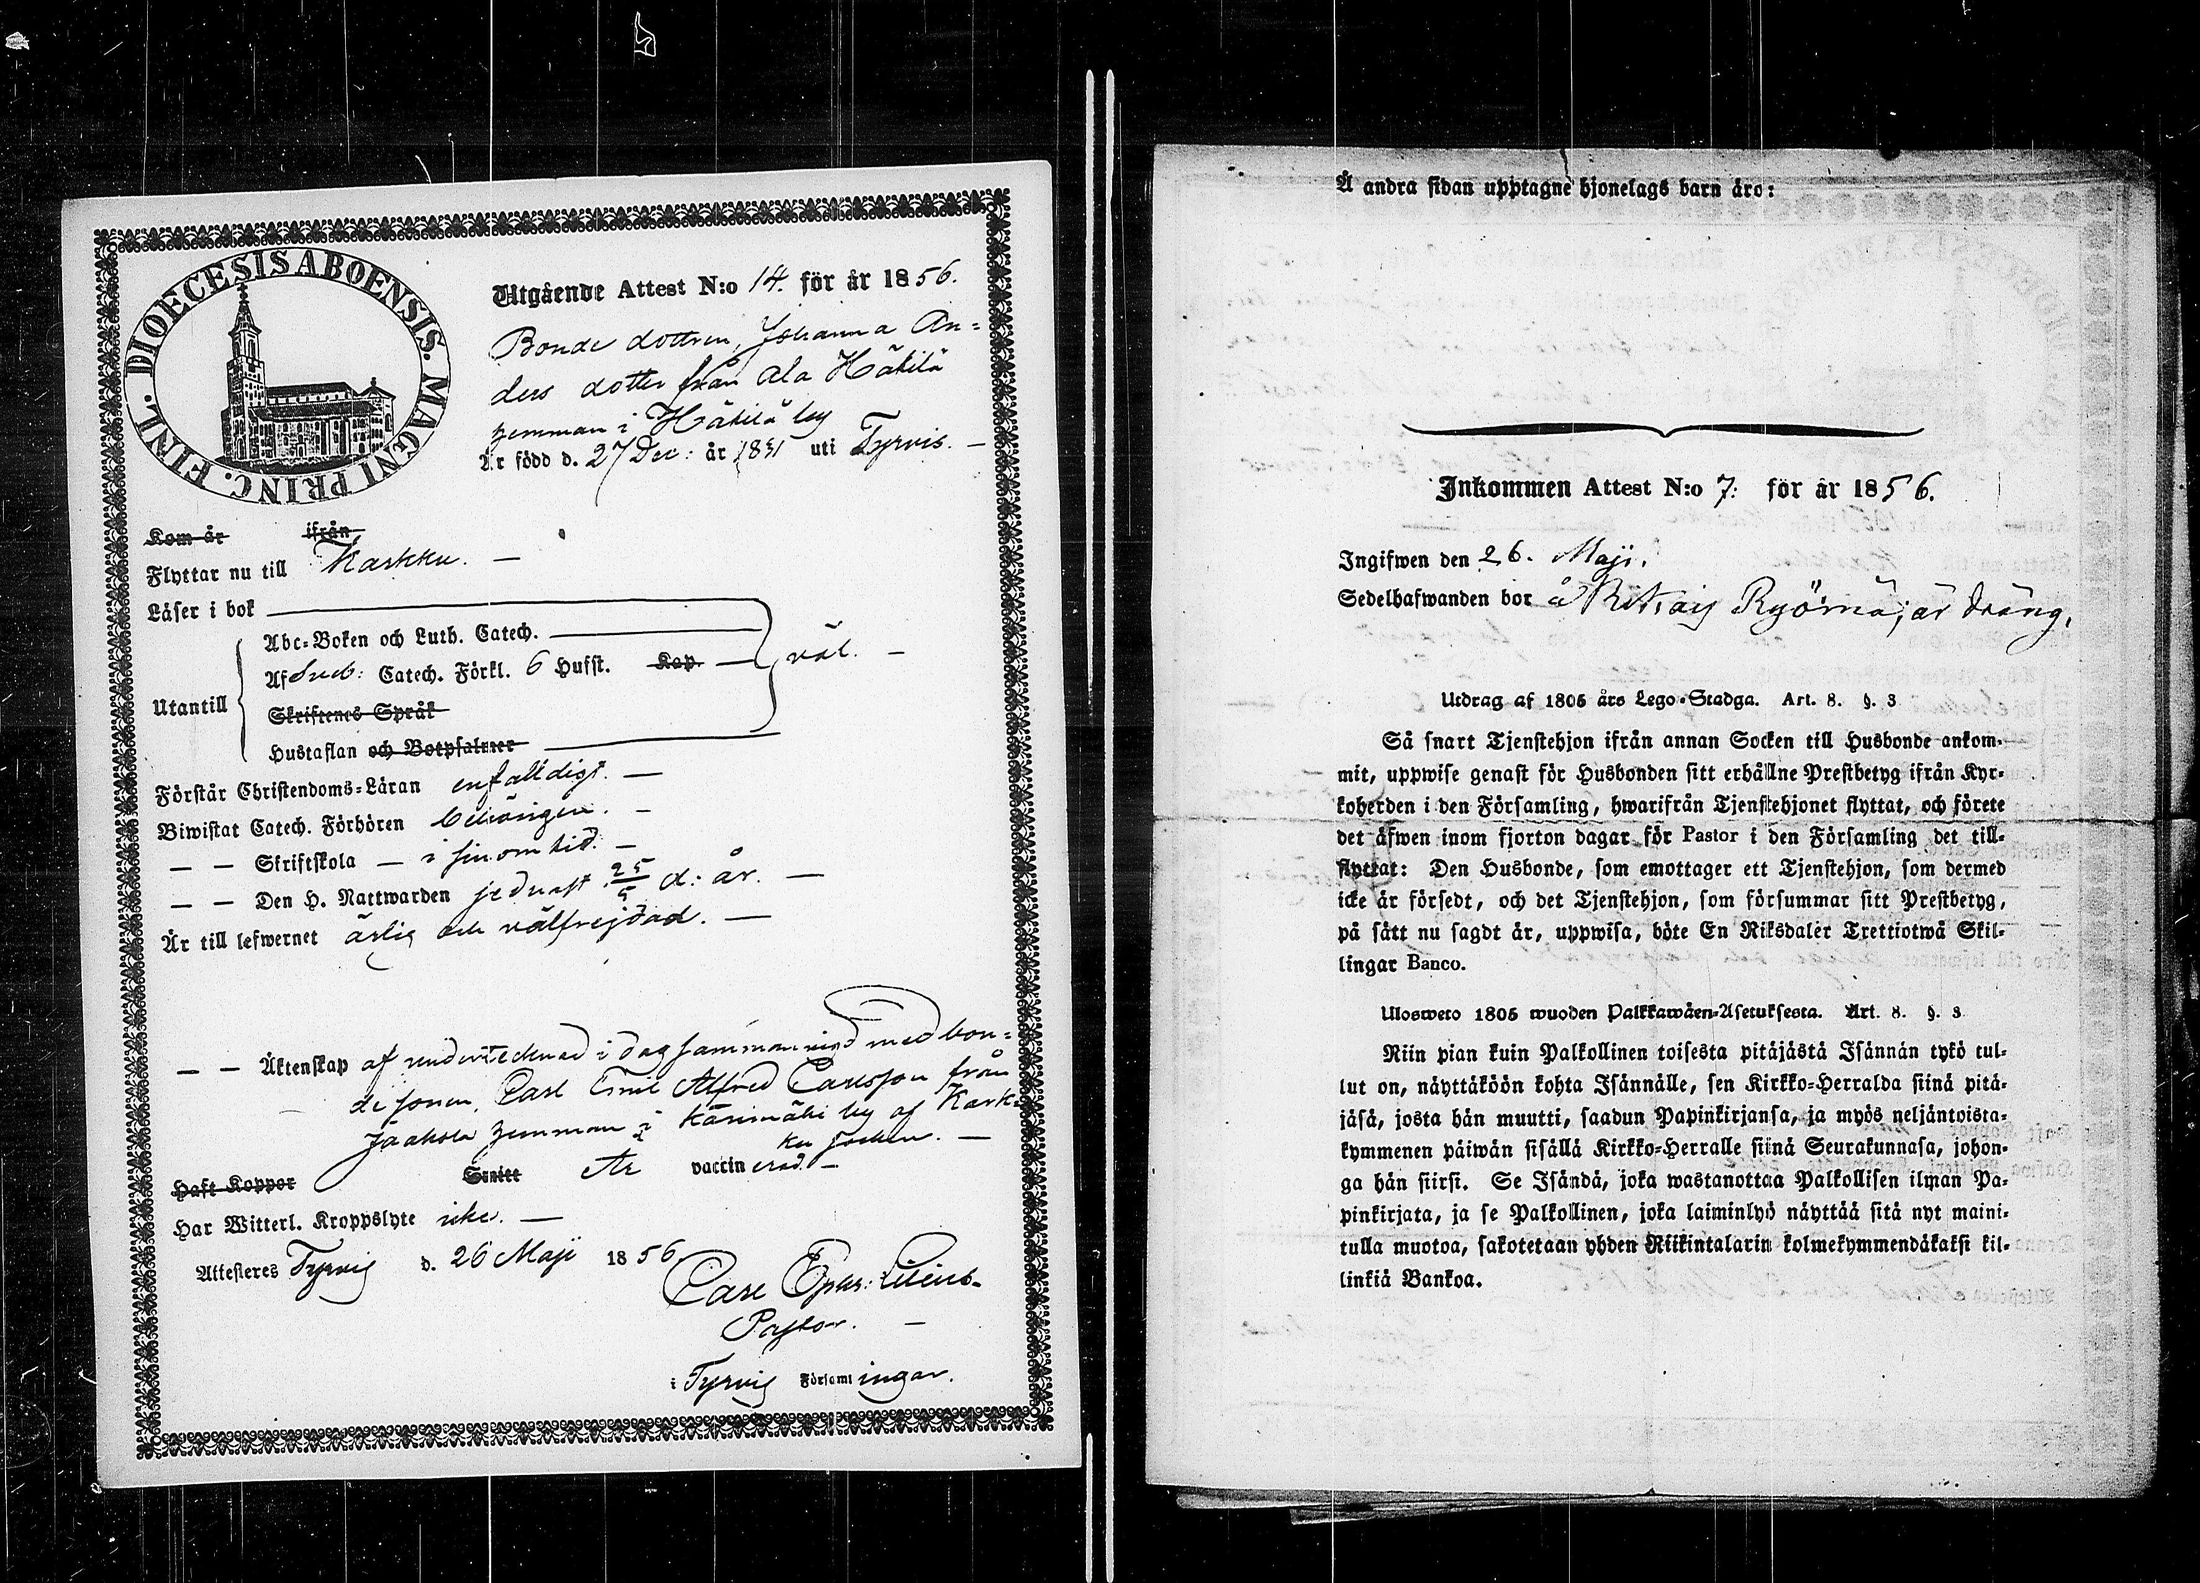 DIOECESIS ABOENSIS. MAGNI PRINC. FINL.
Utgående Attest N:o 14. för år 1856.
Bonde dottren, Johanna An=
ders dotter från Ala Häkilä
hemman i Häkilä by
Är född d. 27 Dec: år 1831 uti Tyrvis. —
Kom år ifrån
Flyttar nu till Karkku. —
Läser i bok
Abc=Boken och Luth. Catech.
Utantill
Af Sveb: Catech. Förkl. 6 Hufst. Kap. väl. —
Skriftenes Språk
Hustaflan och Botpsalmer
Förstår Christendoms=Läran enfalldigt. —
Biwistat Catech. Förhören behörigen. —
— — Skriftskola — i sinom tid. —
— — Den H. Nattwarden sednast 25/5 d: år. —
Är till lefwernet ärlig och välfrejdad. —
— — Äktenskap af undertecknad i dag sammanvigd med bon=
de sonen, Carl Emil Alfred Carlsson från
Jaakola hemman i Kärimäki by af Kark=
ku socken. —
Haft Koppor Smitt Är vaccinerad. —
Har Witterl. Kroppslyte icke. —
Attesteres Tyrvis d. 26 Maji 1856
Carl
Pastor. —
i Tyrvis Församlingar.
Å andra sidan upptagne hjonelags barn äro:
Inkommen Attest N:o 7: för år 1856.
Ingifwen den 26. Maji.
Sedelhafwanden bor å är dräng.
Utdrag af 1805 års Lego-Stadga. Art. 8. §. 3
Så snart Tjenstehjon ifrån annan Socken till Husbonde ankom-
mit, uppwise genast för Husbonden sitt erhållne Prestbetyg ifrån Kyr-
koherden i den Församling, hwarifrån Tjenstehjonet flyttat, och förete
det äfwen inom fjorton dagar för Pastor i den Församling det till-
flyttat: Den Husbonde, som emottager ett Tjenstehjon, som dermed
icke är försedt, och det Tjenstehjon, som försummar sitt Prestbetyg,
på sätt nu sagdt är, uppwisa, böte En Riksdaler Trettiotwå Skil-
lingar Banco.
Ulosweto 1805 wuoden Palkkawäen-Asetuksesta. Art. 8. §. 3
Niin pian kuin Palkollinen toisesta pitäjästä Isännän tykö tul-
lut on, näyttäköön kohta Isännälle, sen Kirkko-Herralda siinä pitä-
jäsä, josta hän muutti, saadun Papinkirjansa, ja myös neljäntoista-
kymmenen päiwän sisällä Kirkko-Herralle siinä Seurakunnasa, johon-
ga hän siirsi. Se Isändä, joka wastanottaa Palkollisen ilman Pa-
pinkirjata, ja se Palkollinen, joka laiminlyö näyttää sitä nyt maini-
tulla muotoa, sakotetaan yhden Riikintalarin kolmekymmendäkaksi kil-
linkiä Bankoa.